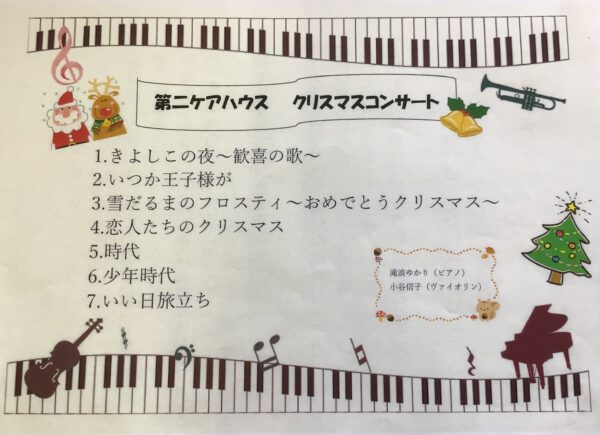 第二ケアハウス クリスマスコンサート
1.きよしこの夜～歓喜の歌～
2.いつか王子様が
3.雪だるまのフロスティ～おめでとうクリスマス～
4.恋人たちのクリスマス
5.時代
6.少年時代
7.いい日旅立ち
滝浪ゆかり（ピアノ）
小谷信子（ヴァイオリン）